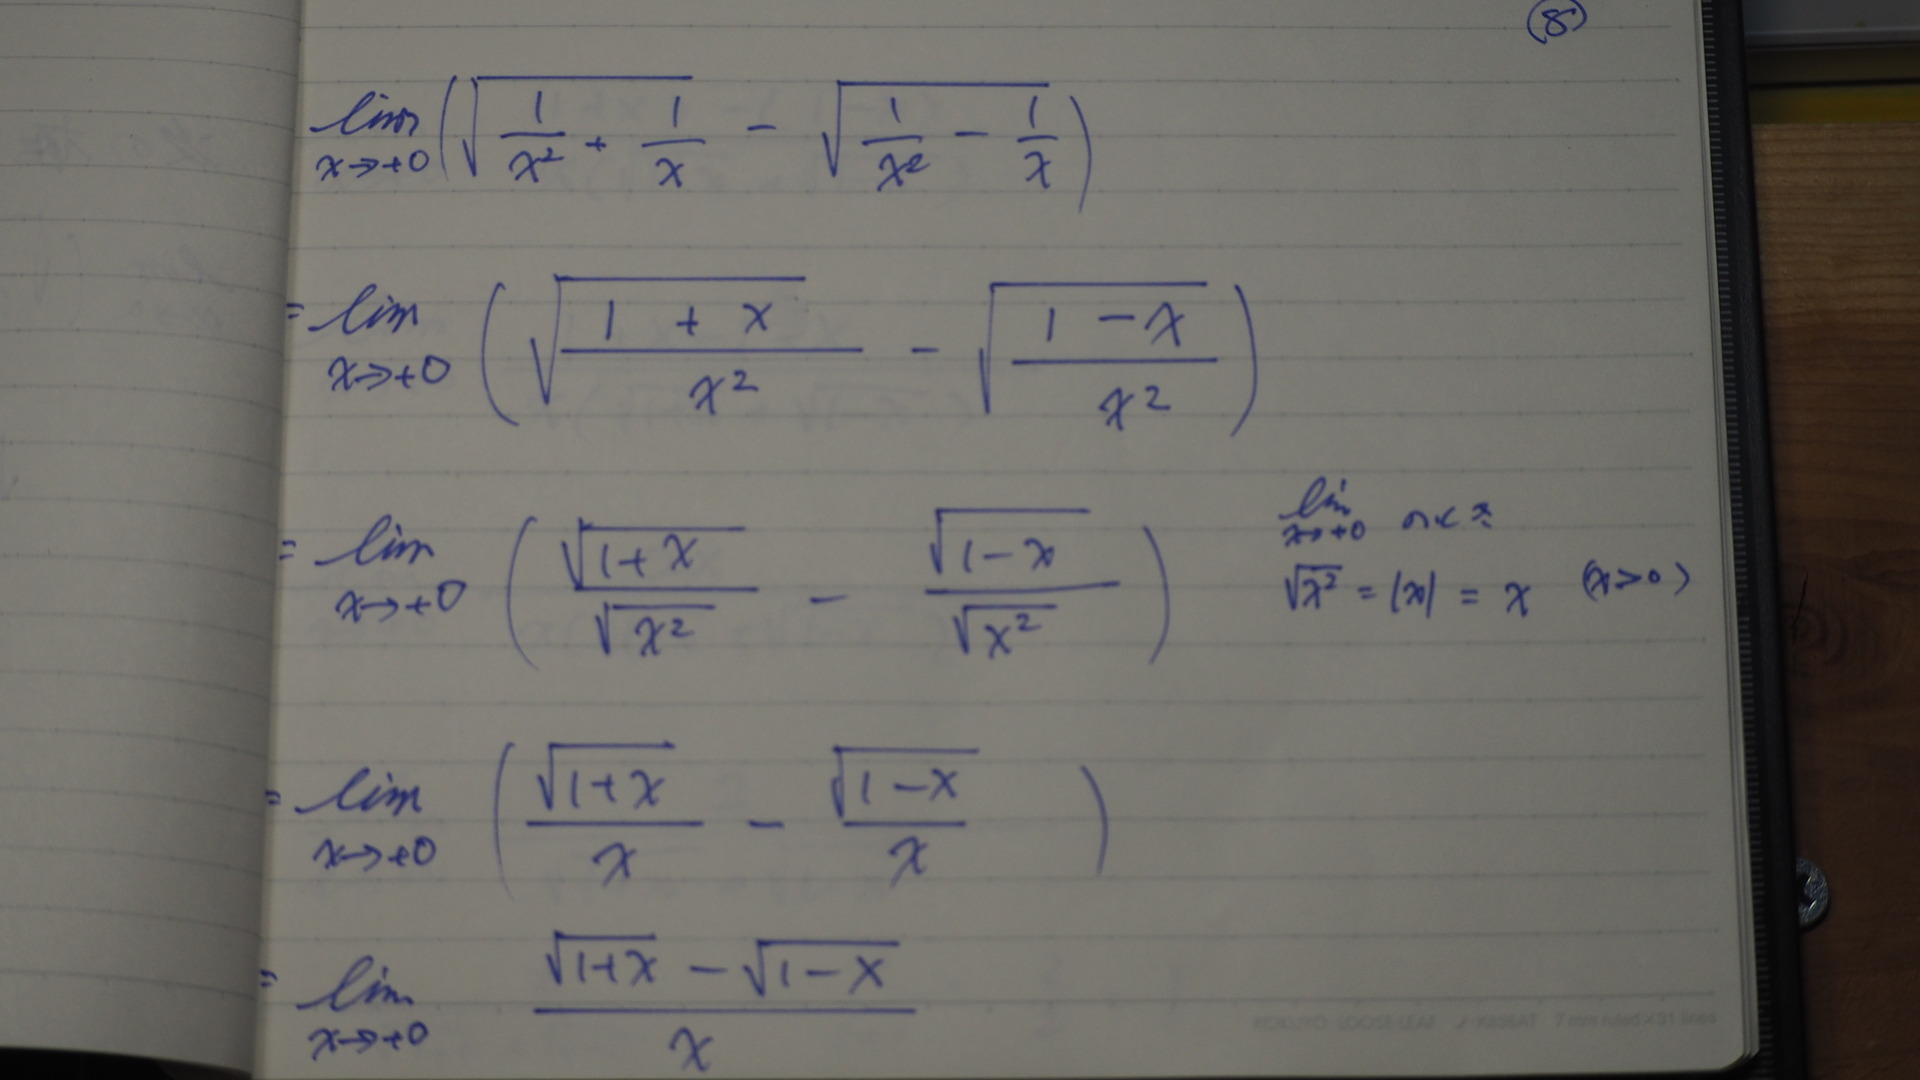 ⑧
lim x→+0 (√(1/x² + 1/x) − √(1/x² − 1/x))
= lim x→+0 (√((1 + x)/x²) − √((1 − x)/x²))
= lim x→+0 (√(1+x)/√(x²) − √(1−x)/√(x²))
lim x→+0 のとき
√(x²) = |x| = x (x>0)
= lim x→+0 (√(1+x)/x − √(1−x)/x)
= lim x→+0 (√(1+x) − √(1−x))/x
7 mm ruled×31 lines